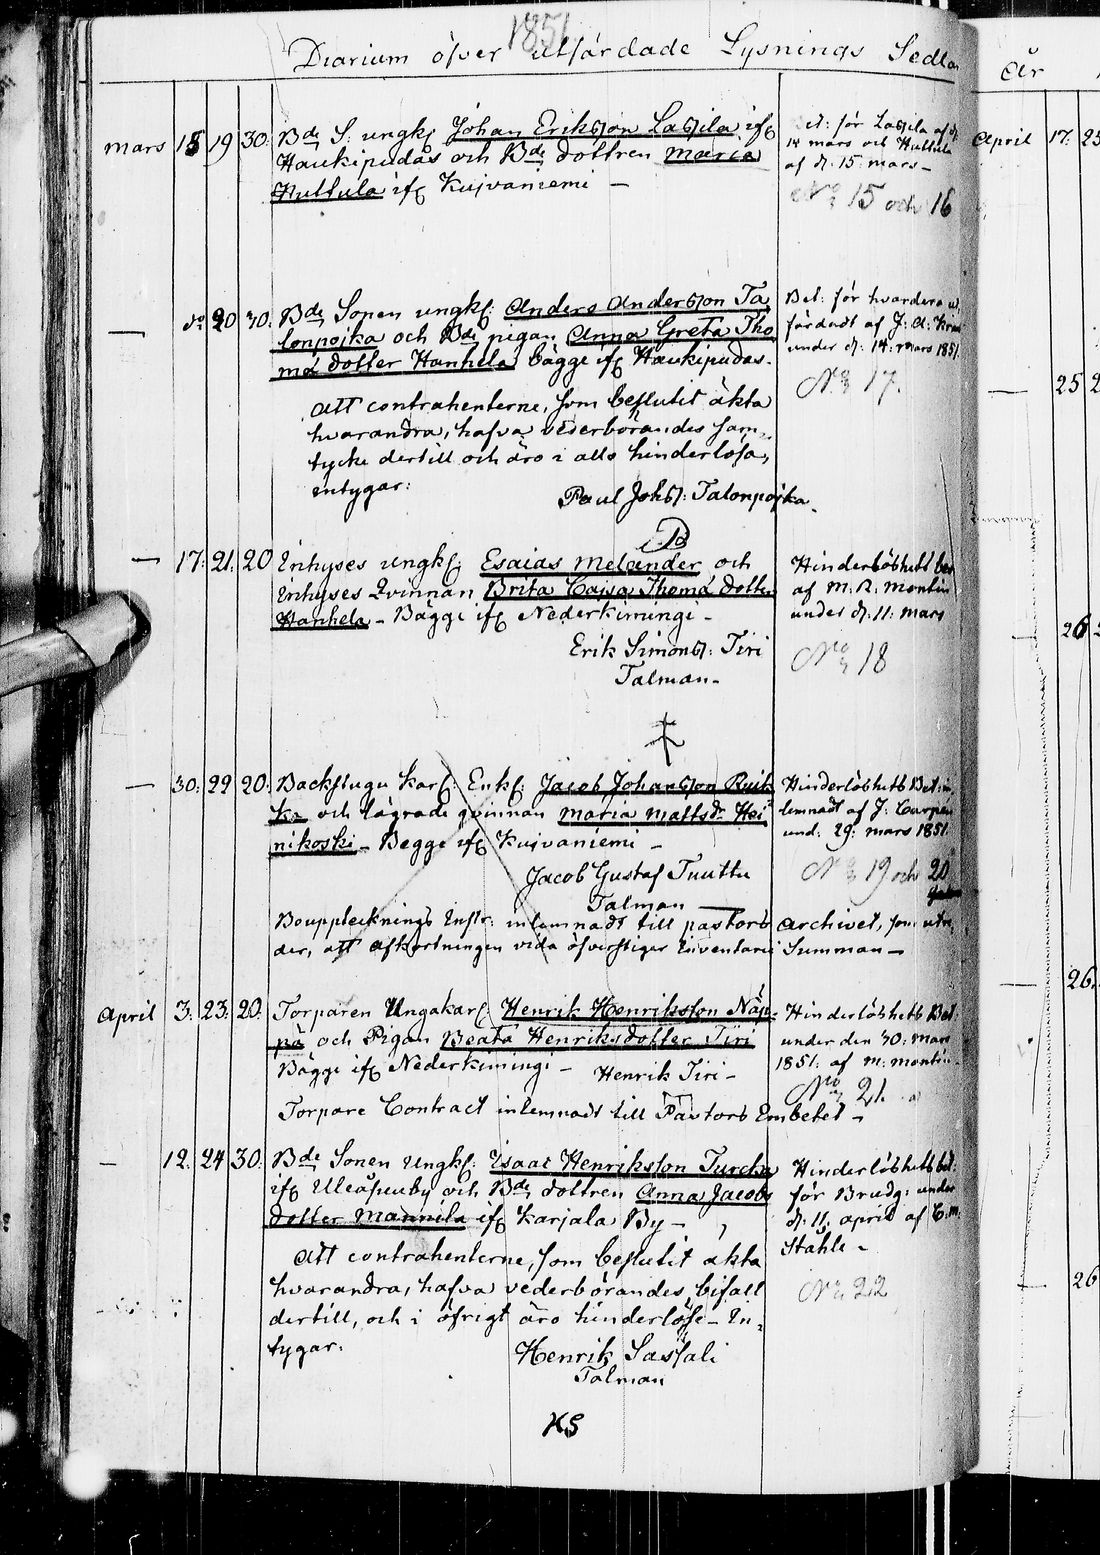 1851
Diarium öfver utfärdade Lysnings Sedla
mars 15 19 30. Bde S. ungk: Johan Eriksson Lassila if:
Haukipudas och Bde dottren Maria
Huttula if: Kuivaniemi —
Bet: för Lassila af d:
14 mars och Huttula
af d: 15: mars —
No 15 och 16
— do 20 30. Bde Sonen ungk: Anders Andersson Ta
lonpojka och Bde pigan Anna Greta Tho
mä dotter Hanhela bägge if: Haukipudas.
Bet: för hvardera ut
färdadt af J: A:
under d: 14: mars 1851.
No 17.
att contrahenterne, som beslutit äkta
hvarandra, hafva vederbörandes sam-
tycke dertill och äro i allo hinderlösa,
intygar:
Paul Johs: Talonpojka.
— 17: 21. 20 Inhyses ungk: Esaias Melander och
Inhyses Qvinnan Brita Cajsa Thomä dotter
Hanhela — Bägge if: Nederkimingi —
Erik Simons: Tiri
Talman —
Hinderlöshets bet
af M: R: Montin
under d: 11: Mars
No 18
— 30: 22 20: Backstugu karl: Enkl: Jacob Johansson Ruik
ka och lägrade qvinnan Maria Mattsdr Hei
nikoski — Begge if: Kuivaniemi —
Jacob Gustaf Tuuttu
Talman —
Hinderlöshets Bet: in
lemnadt af J: Carpén
und: 29: mars 1851.
No 19 och 20
Bouppteknings Instr: inlemnadt till pastors archivet, som utvi
der, att afkortningen vida öfverstiger Inventarii Summan —
April 3: 23: 20: Torparen Ungakarl: Henrik Henriksson Näp-
pä och Pigan Beata Henriksdotter Tiri
Bägge if: Nederkimingi — Henrik Tiri —
Torpare Contract inlemnadt till Pastors Embetet —
Hinderlöshets Bet:
under den 30: Mars
1851: af M: Montin.
No 21.
— 12. 24 30. Bde Sonen Ungk: Isaac Henriksson Turcka
if: Uleåsuuby och Bde dottren Anna Jacobs
dotter Mannila if: Karjala By —
Hinderlöshets bet:
för Brudg: under
d: 11. april af C: M:
Ståhle —
No 22
Att contrahenterne, som beslutit äkta
hvarandra, hafva vederbörandes bifall
dertill, och i öfrigt äro hinderlöse — In-
tygar.
Henrik Sassali
Talman
År
April 17: 25
— 25 2
— 26 2
— 26.
— 26